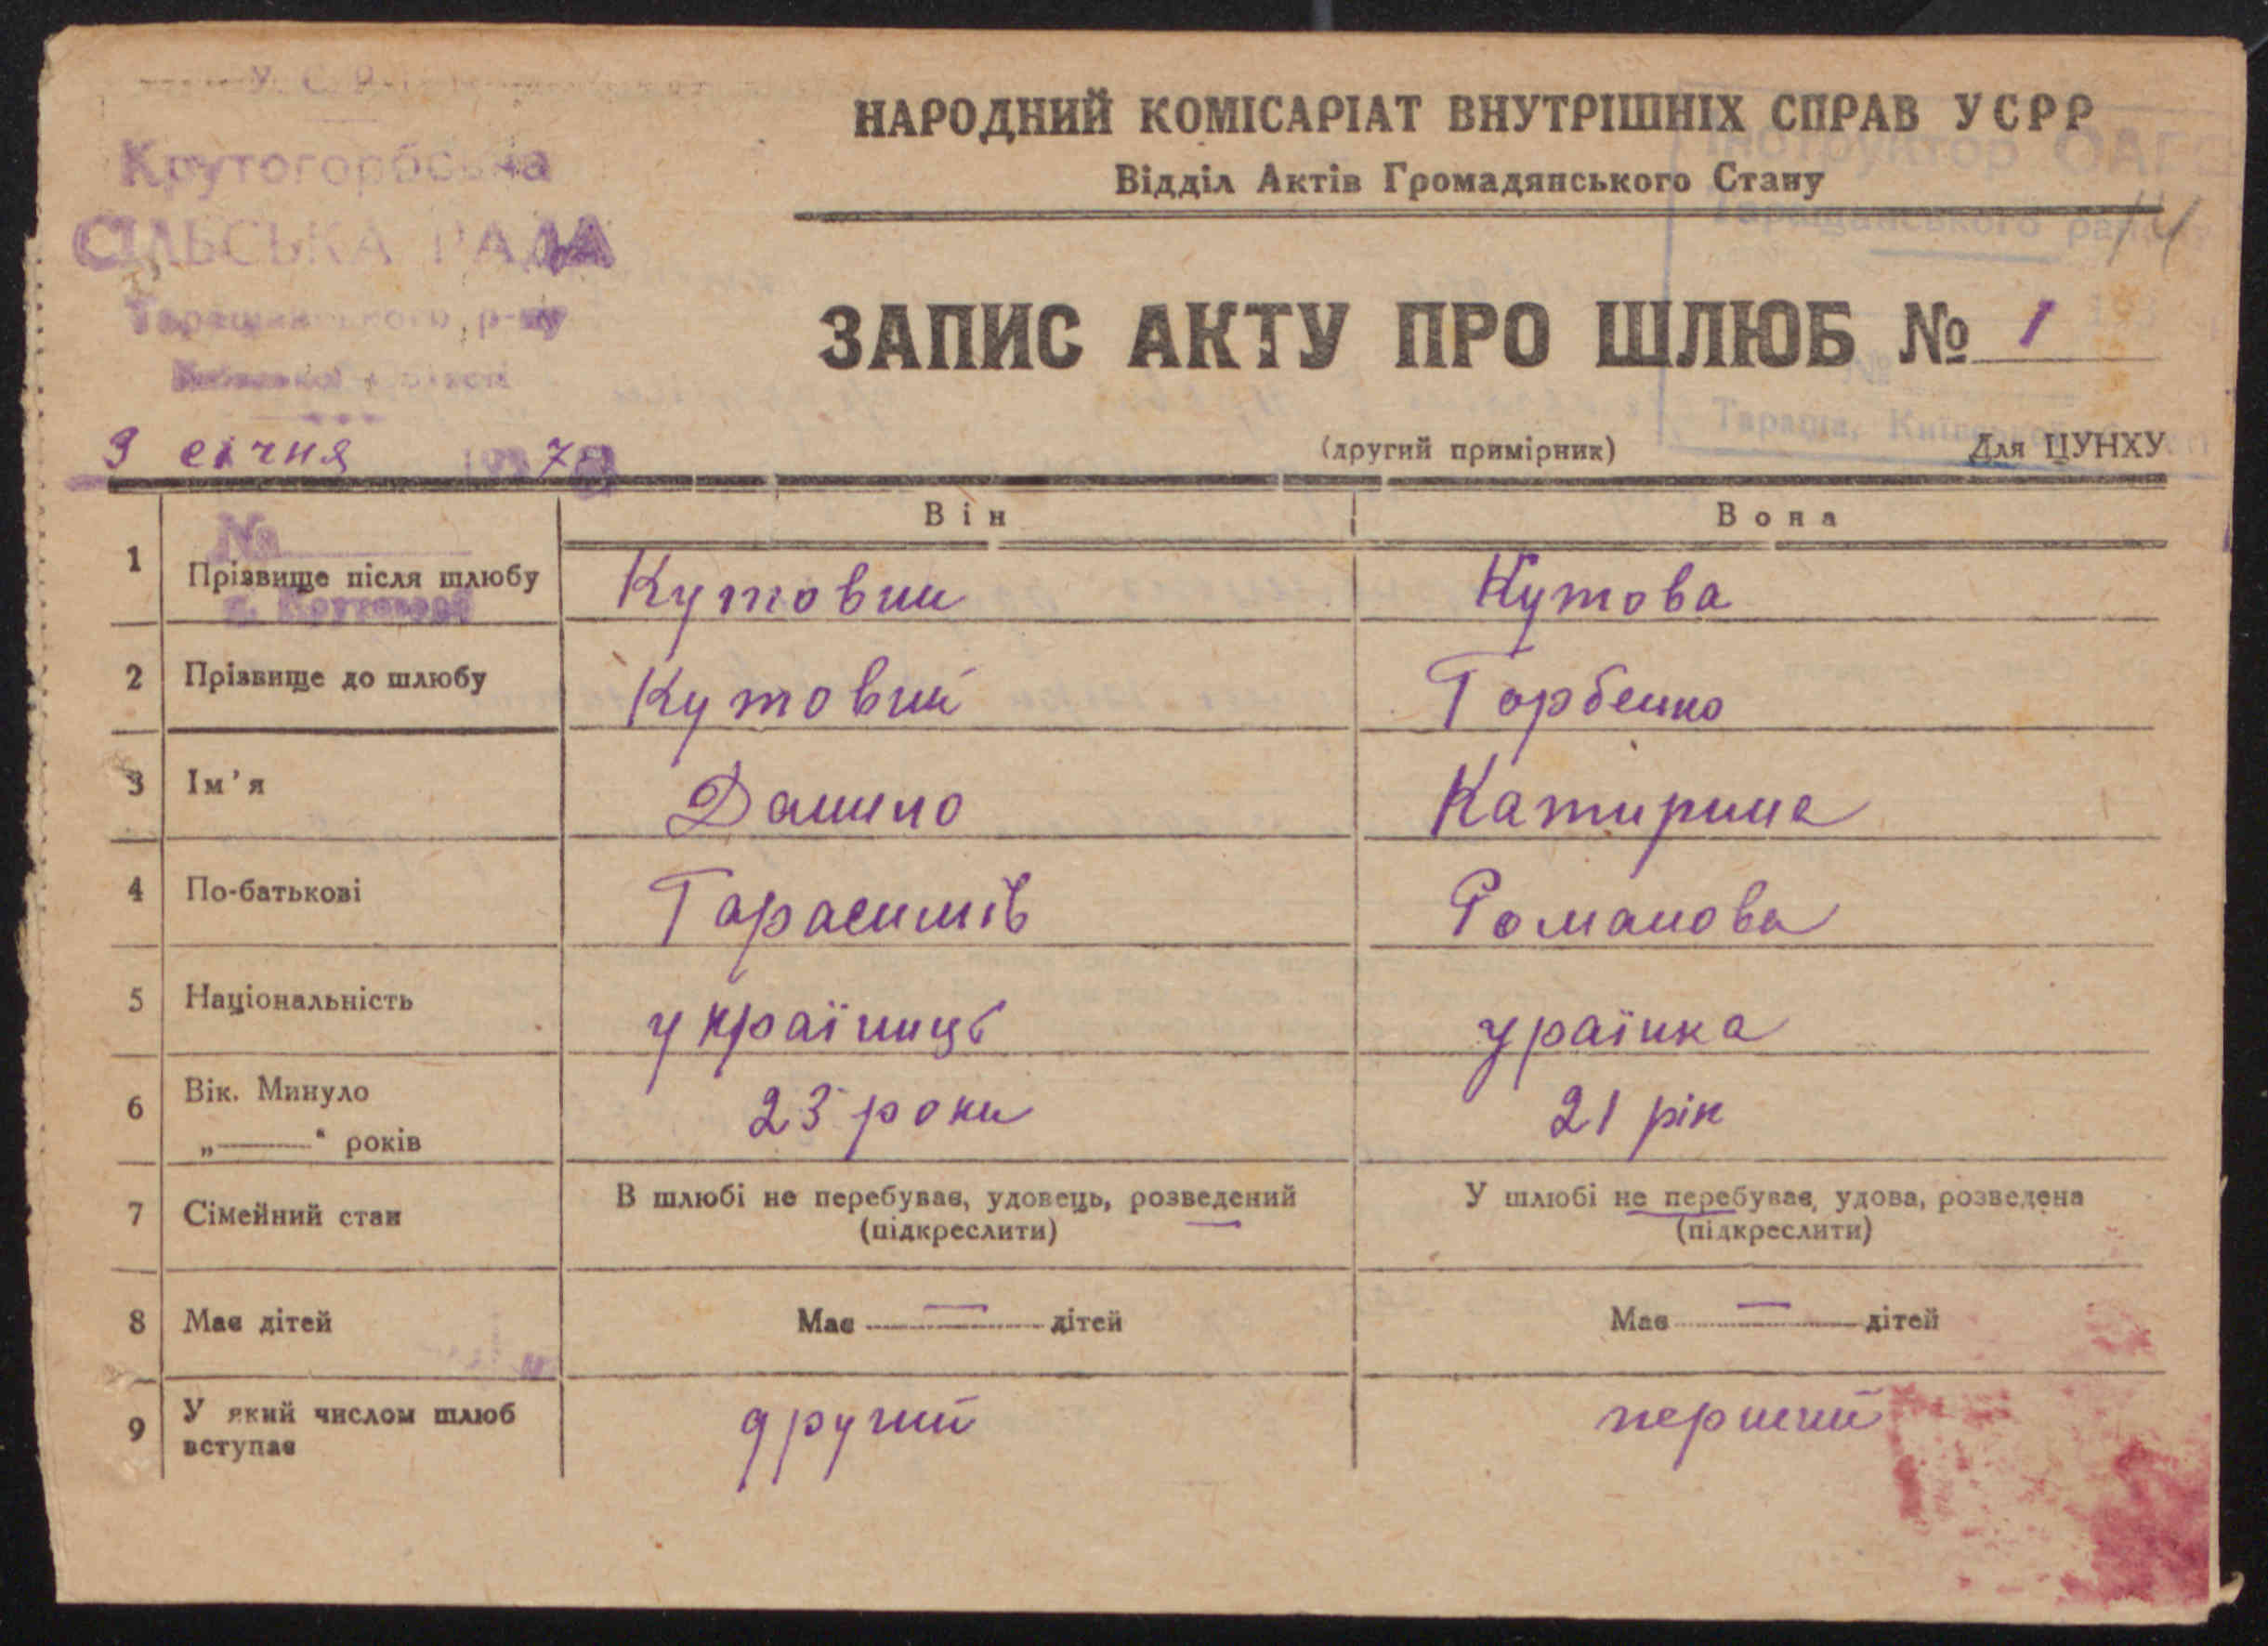 У С Р Р
Крутогорбська
СІЛЬСЬКА РАДА
Таращанського р-ну
Київської області
9 січня 1937
№
с. Крутогорб
НАРОДНИЙ КОМІСАРІАТ ВНУТРІШНІХ СПРАВ УСРР
Відділ Актів Громадянського Стану
Інструктор ОАГС
Таращанського району
14
ЗАПИС АКТУ ПРО ШЛЮБ № 1
№
Тараща, Київської області
(другий примірник) Для ЦУНХУ
Він Вона
1 Прізвище після шлюбу Кутовии Кутова
2 Прізвище до шлюбу Кутовий Горбенко
3 Ім'я Данило Катирина
4 По-батькові Гарасимів Романова
5 Національність українець україїнка
6 Вік. Минуло 23 роки 21 рік
„——“ років
7 Сімейний стан В шлюбі не перебував, удовець, розведений У шлюбі не перебував, удова, розведена
(підкреслити) (підкреслити)
8 Має дітей Має — дітей Має — дітей
9 У який числом шлюб другий перший
вступає